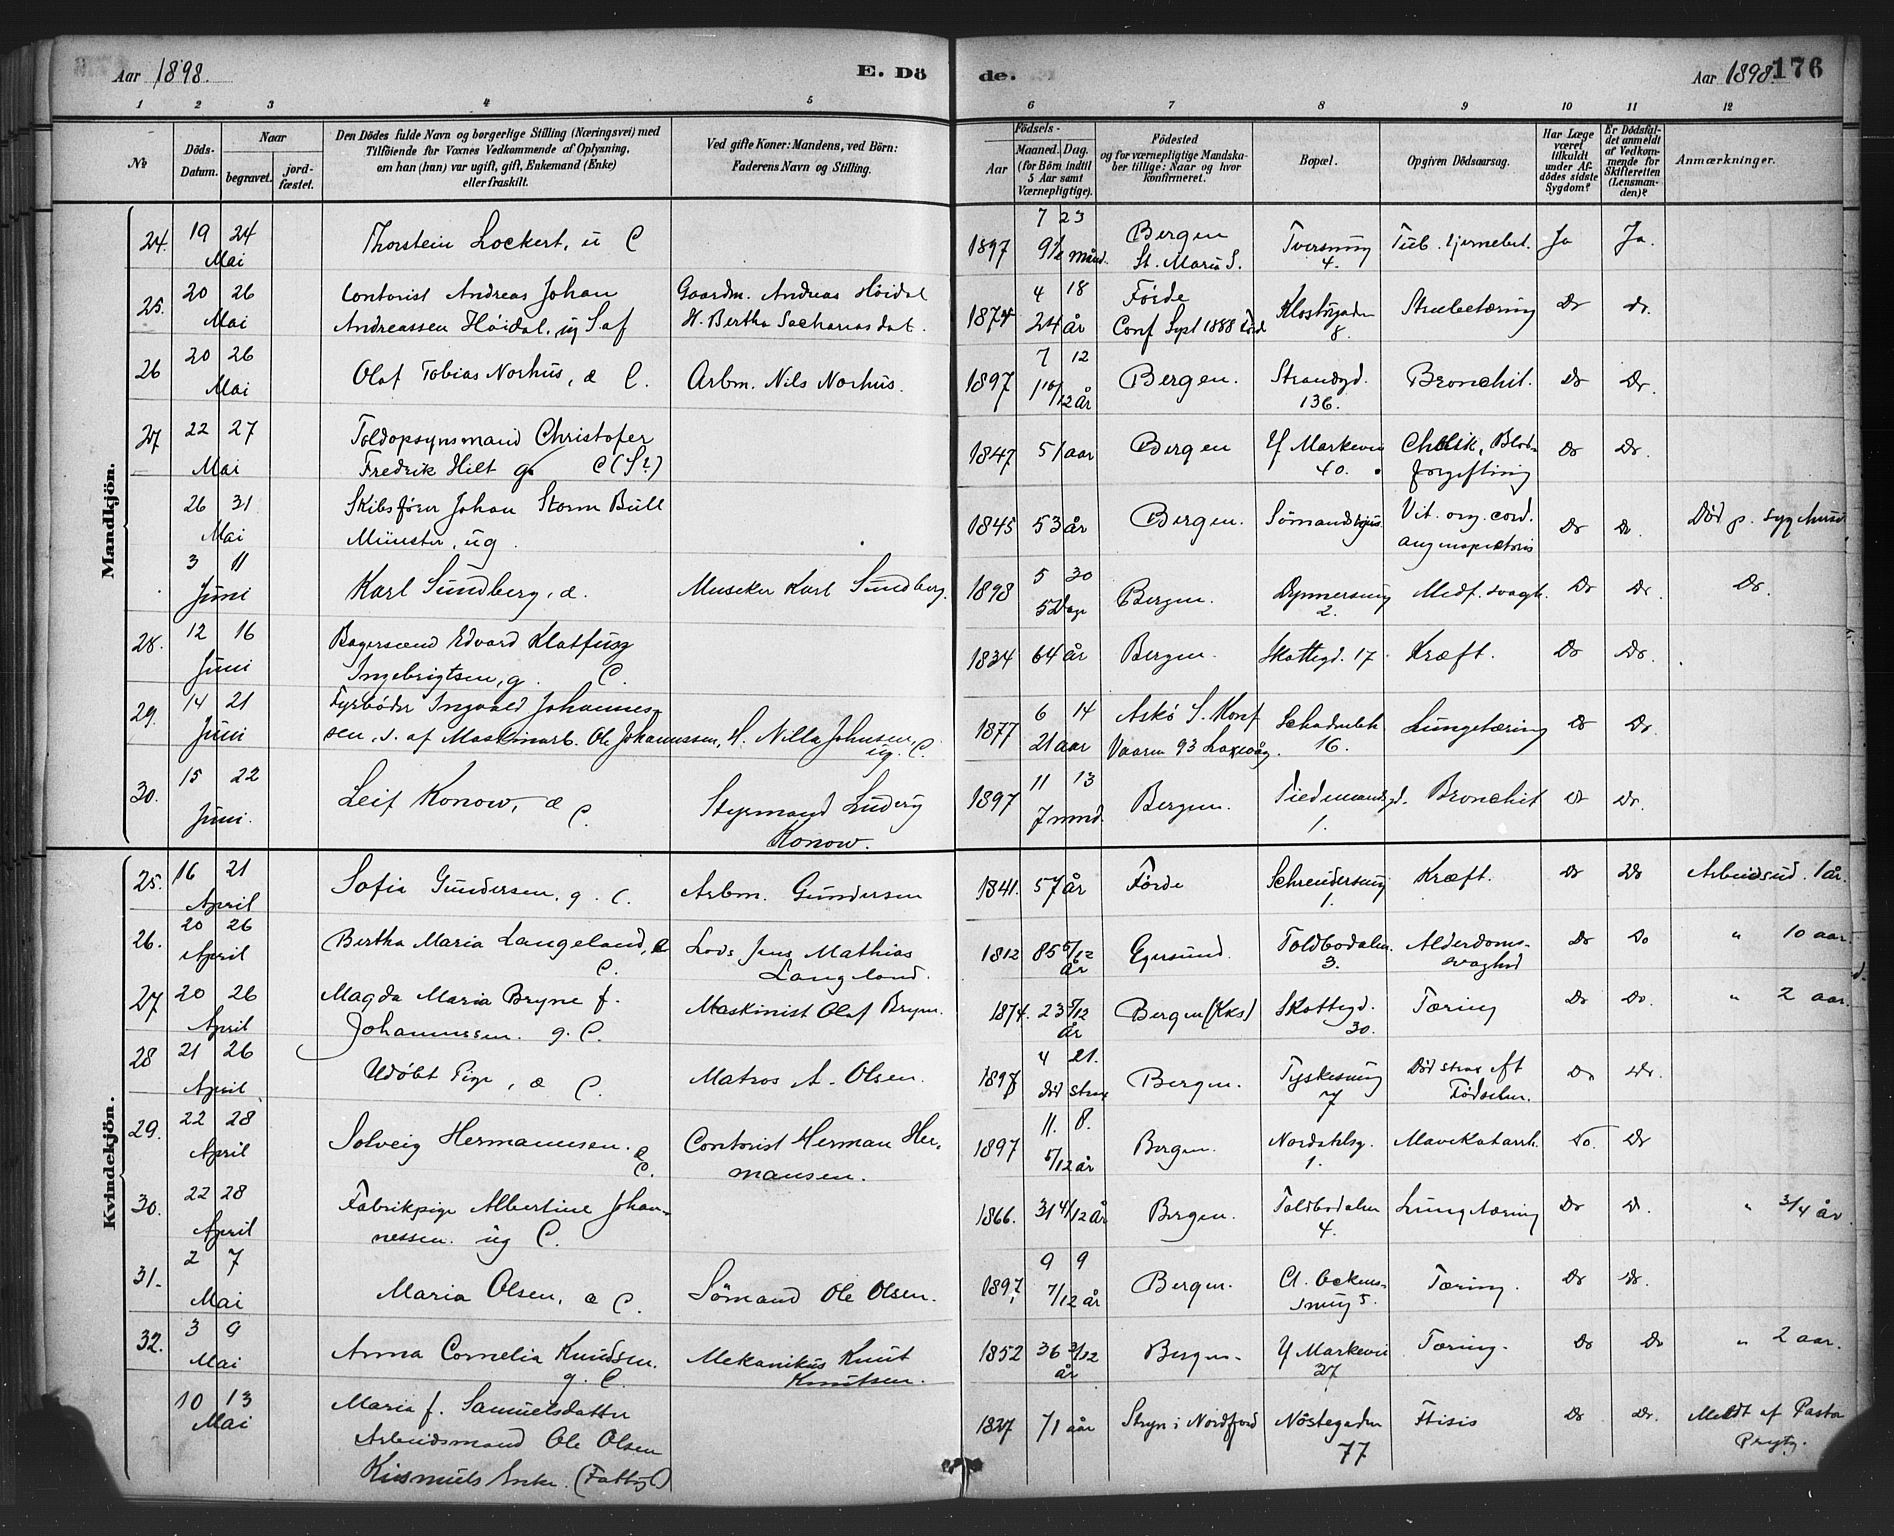 Aar 1898.
E. Dö
de.
Aar 1898.
176
1 2 3 4 5 6 7 8 9 10 11 12
No
Döds-
Datum.
Naar
begravet.
jord-
fæstet.
Den Dödes fulde Navn og borgerlige Stilling (Næringsvei) med
Tilföiende for Voxnes Vedkommende af Oplysning,
om han (hun) var ugift, gift, Enkemand (Enke)
eller fraskilt.
Ved gifte Koner: Mandens, ved Börn:
Faderens Navn og Stilling.
Födsels-
Aar
Maaned. Dag.
(for Börn indtil
5 Aar samt
Værnepligtige).
Födested
og for værnepligtige Mandska-
ber tillige: Naar og hvor
konfirmeret.
Bopæl.
Opgiven Dödsaarsag.
Har Læge
været
tilkaldt
under Af-
dödes sidste
Sygdom?
Er Dödsfal-
det anmeldt
af Vedkom-
mende for
Skifteretten
(Lensman-
den)?
Anmærkninger.
Mandkjön.
24. 19 24 Mai
Thorstein Lockert, u C
1897 7 23 9½ månd.
Bergen
St. Maria S.
4.
Ja Ja.
25. 20 26 Mai
Contorist Andreas Johan
Andreassen Höidal, ug S af
Gaardm. Andreas Höidal
H. Bertha Sachariasdat.
1874 4 18 24 år
Förde
Conf Sept 1888
8.
Strubetæring
Do Do.
26 20 26 Mai
Olaf Tobias Norhus, æ C.
Arbm. Nils Norhus.
1897 7 12 1 10/12 år
Bergen.
Strandgd.
136.
Bronchit.
Do Do.
27 22 27 Mai
Toldopsynsmand Christofer
Fredrik Hilt g. C (St)
1847 51 aar
Bergen
Y Markevei
40.
Blod-
forgiftning
Do Do.
26 31 Mai
Skibsförer Johan Storm Bull
Münster, ug.
1845 53 år
Bergen.
Vit. org. cord.
Do Do
Död p. sygehuset
3 11 Juni
Karl Sundberg, æ.
Musiker Karl Sundberg.
1898 5 30 5 Dage
Bergen.
2.
Medf. svagh.
Do Do. Do.
28. 12 16 Juni
Edvard Klatfusz
Ingebrigtsen, g. C.
1834 64 år
Bergen.
Skottegd. 17.
Kræft.
Do Do.
29. 14 21 Juni
Fyrböder Ingvald Johannes-
sen, s. af Maskinarb. Ole Johannssen, H. Nilla Johnsen,
ug. C.
1877 6 14 21 aar
Askö S. Konf
Vaaren 93 Laxevåg.
16.
Lungetæring
Do Do.
30. 15 22 Juni.
Leif Konow, æ C.
Styrmand Ludvig
Konow.
1897 11 13 7 mnd.
Bergen.
Tiedemandsgd.
1.
Bronchit
Do Do.
Kvindekjön.
25. 16 21 April
Sofia Gundersen, g. C.
Arbm. Gundersen
1841. 57 år
Förde
1.
Kræft.
Do Do
Arbeidsud. 1 år.
26. 20 26 April
Bertha Maria Langeland, e
C.
Lods Jens Mathias
Langeland.
1812 85 5/12 år
Egersund.
Toldbodalm.
3.
Alderdoms-
svaghed
Do Do
" 10 aar.
27 20 26 April
Magda Maria Bryne f.
Johannessen. g. C.
Maskinist Olaf Bryne.
1874. 23 5/12 år
Bergen (Kks)
Skottegd.
30.
Tæring
Do Do.
" 2 aar.
28 21 26 April
Udöbt Pige, æ C.
Matros A. Olsen.
1898 4 21. död strax
Bergen.
Tyskesmug
7
Död strax eft
Födselen.
Do Do.
29. 22 28 April
Solveig Hermannsen. æ
C.
Contorist Herman Her-
mansen.
1897 11. 8. 5/12 år
Bergen.
Nordahlsg.
1.
Mavekatarrh.
Do. Do
30. 22 28 April
Fabrikpige Albertine Johan-
nessen. ug C.
1866. 31 4/12 år
Bergen.
Toldbodalm
4.
Lungetæring
Do Do.
" 3/4 år.
31. 2 7 Mai
Maria Olsen, æ C.
Sömand Ole Olsen.
1897, 9 9 7/12 år
Bergen.
Cl. Ockens-
smug 5.
Tæring.
Do Do.
32. 3 9 Mai
Anna Cornelia Knudsen.
g. C.
Mekanikus Knut
Knutsen.
1852 36 3/12 år
Bergen.
Y Markevei
27
Tæring.
Do Do
" 2 aar.
10 13 Mai
Maria f. Samuelsdatter
Arbeidsmand Ole Olsen
Enke. (Fattig C)
1827 71 aar
Stryn i Nordfjord
Nöstegaden
77
Ftisis
Do Do.
Meldt af Pastor